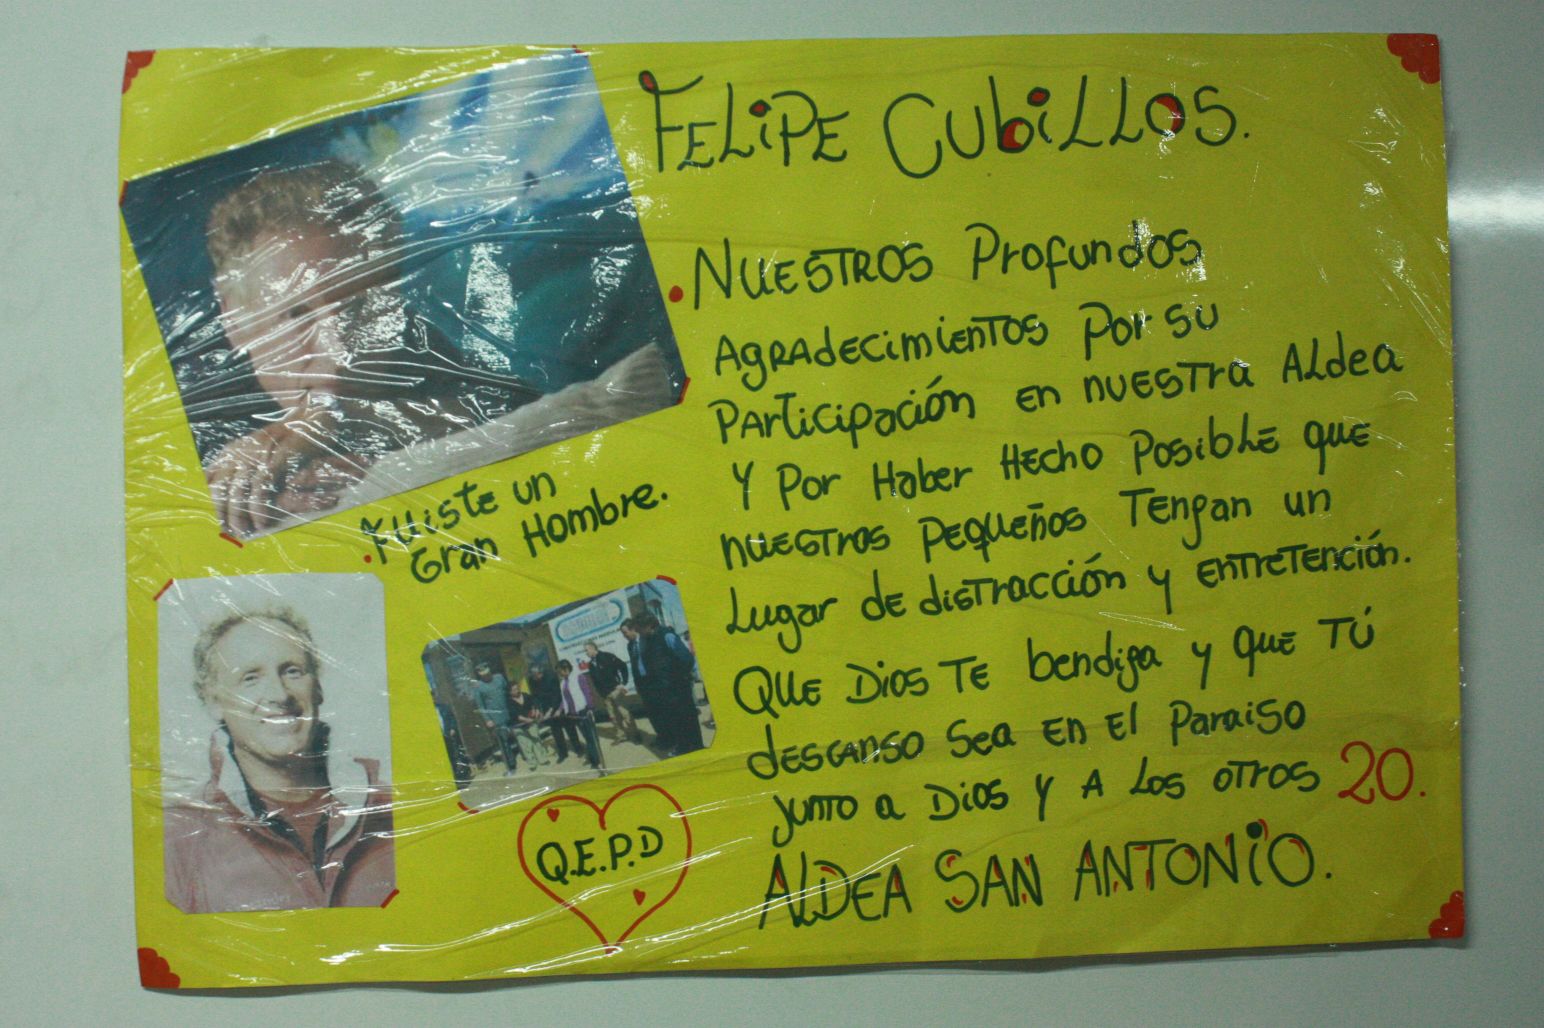 FELiPE CubiLLOS.
NUESTROS Profundos
AgRAdecimienTOS Por su
PArticipación en nuESTra ALdea
Y Por Haber HECHO POSibLE que
nuESTros PEQUEÑOS TEngan un
Lugar dE disTracción y EnTRETEnción.
QUE Dios TE bendiga y que TÚ
dEScanso Sea En El Paraiso
junto a Dios Y A Los oTros 20.
ALDEA SAN ANTONiO.
Fuiste un
Gran Hombre.
Q.E.P.D